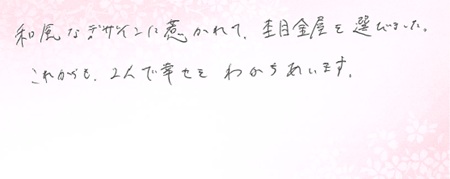 和風なデザインに惹かれて、杢目金屋を選びました。
これからも、2人で幸せをわかちあいます。